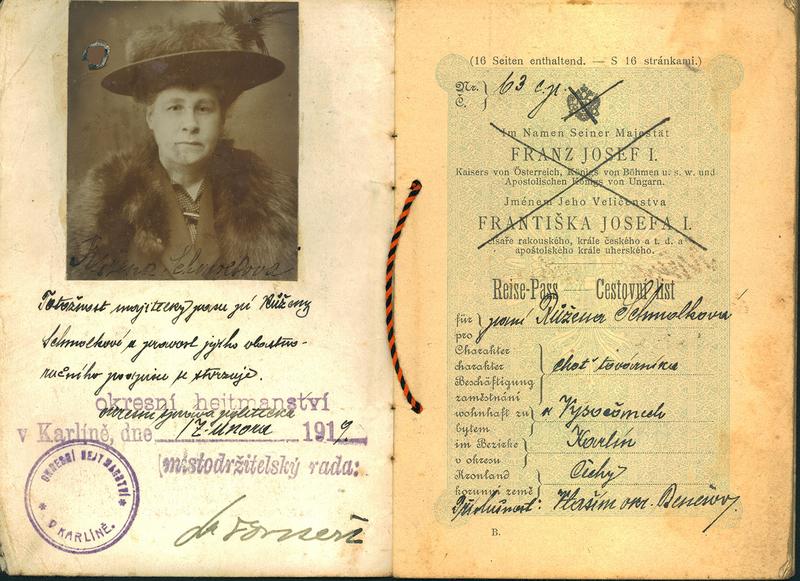 Růžena Schmolkova
Totožnost majitelky pasu pí Růženy
Schmolkové a pravost jejího vlastno-
ručního podpisu se stvrzuje.
okresní hejtmanství
okresní správa politická
v Karlíně, dne 17. února 1919
(místodržitelský rada:
OKRESNÍ HEJTMANSTVÍ
* V KARLÍNĚ. *
(16 Seiten enthaltend. — S 16 stránkami.)
Nr.
Č. } 63 č.p.
Im Namen Seiner Majestät
FRANZ JOSEF I.
Kaisers von Österreich, Königs von Böhmen u. s. w. und
Apostolischen Königs von Ungarn.
Jménem Jeho Veličenstva
FRANTIŠKA JOSEFA I.
císaře rakouského, krále českého a t. d. a
apoštolského krále uherského.
Reise-Pass — Cestovní list
für
pro } paní Růžena Schmolkova
Charakter
charakter } choť továrníka
Beschäftigung
zaměstnání
wohnhaft zu
bytem } v Vysočanech
im Bezirke
v okresu } Karlín
Kronland
korunní země } Čechy
Příslušnost: Vlašim okr. Benešov.
B.